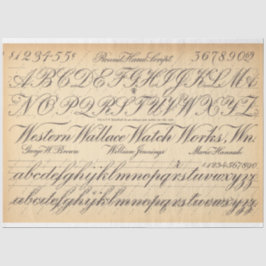 $1234558 Round Hand Script. 367890
ABCDEFGHIJKLM
NOPQRSTUVWXYZ
Western Wallace Watch Works, Wn.
George W. Brown William Jennings Maria Hannah
$1234567890.
abcdefghijklmnopqrstuvwxyz
abcdefghijklmnopqrstuvwxyz